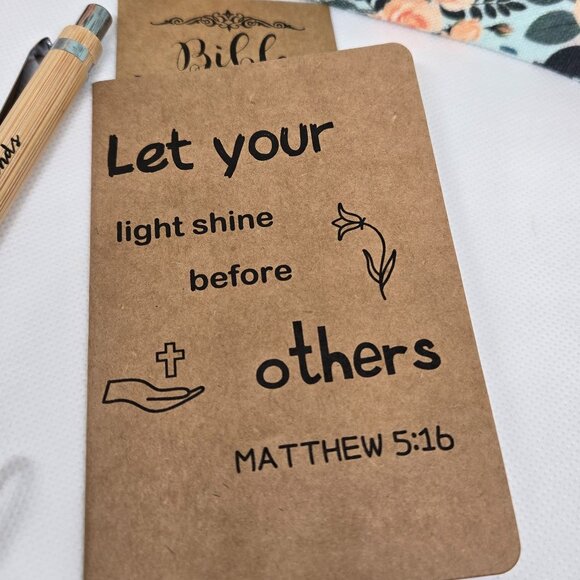 Bibl
Let your
light shine
before
others
MATTHEW 5:16
nds